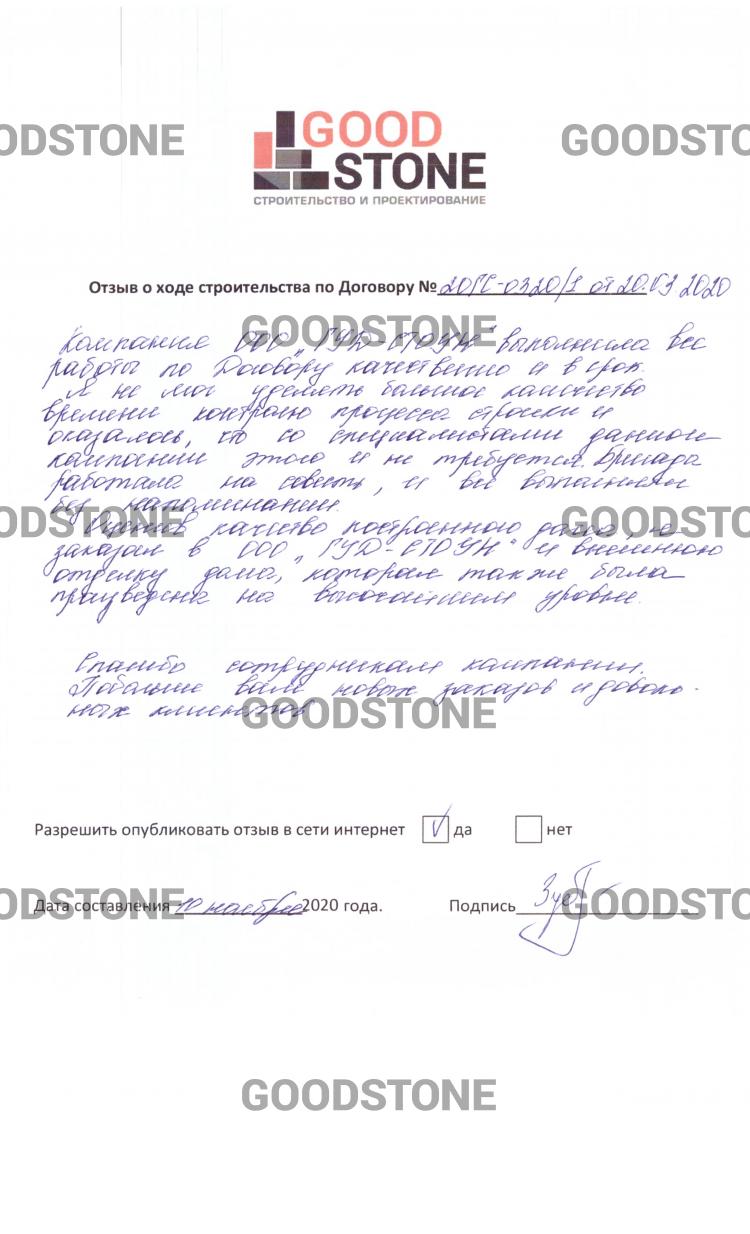 GOODSTONE
GOODSTONE
GOOD
STONE
СТРОИТЕЛЬСТВО И ПРОЕКТИРОВАНИЕ
Отзыв о ходе строительства по Договору № 20ГС-0320/1 от 20.03 2020
GOODSTONE
Компания ООО „ГУД-СТОУН" выполнила все
работы по Договору качественно и в срок.
Я не мог уделять большое количество
времени контролю процесса стройки и
оказалось, что со специалистами данной
компании этого и не требуется. Бригада
работала на совесть, и всё выполняли
без напоминаний.
GOODSTONE
GOODSTONE
Оценив качество построенного дома, я
заказал в ООО „ГУД-СТОУН" и внешнюю
отделку дома, которая также была
произведена на высочайшем уровне.
Спасибо сотрудникам компании.
Побольше вам новых заказов и доволь-
ных клиентов
GOODSTONE
Разрешить опубликовать отзыв в сети интернет V да нет
GOODSTONE
GOODSTONE
Дата составления 10 ноября 2020 года. Подпись
GOODSTONE